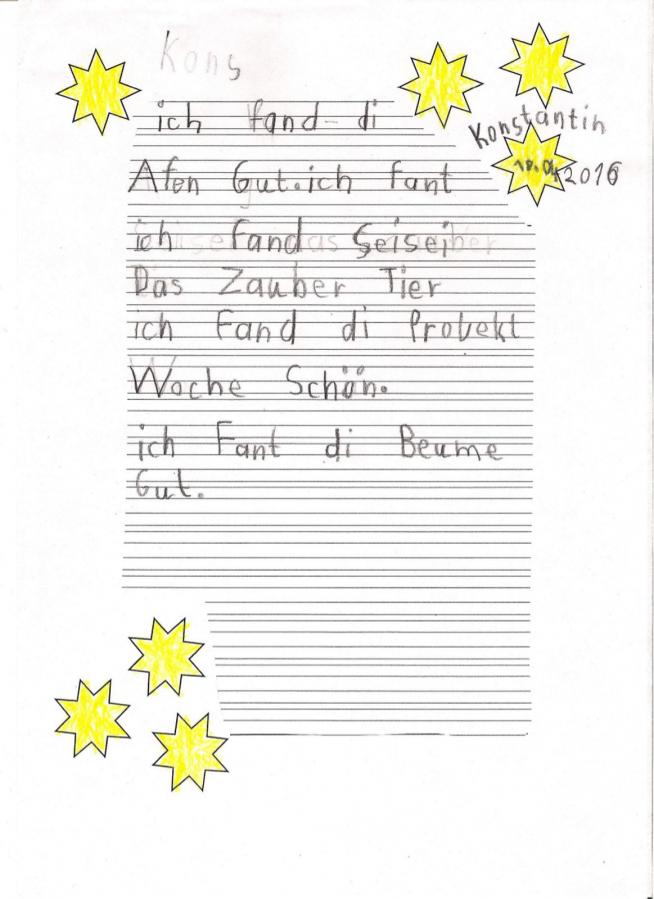 Kons
Konstantin
2016
ich fand di
Afen Gut. ich fant
ich Fand Seisei
Das Zauber Tier
ich Fand di Probekt
Woche Schön.
ich Fant di Beume
Gut.